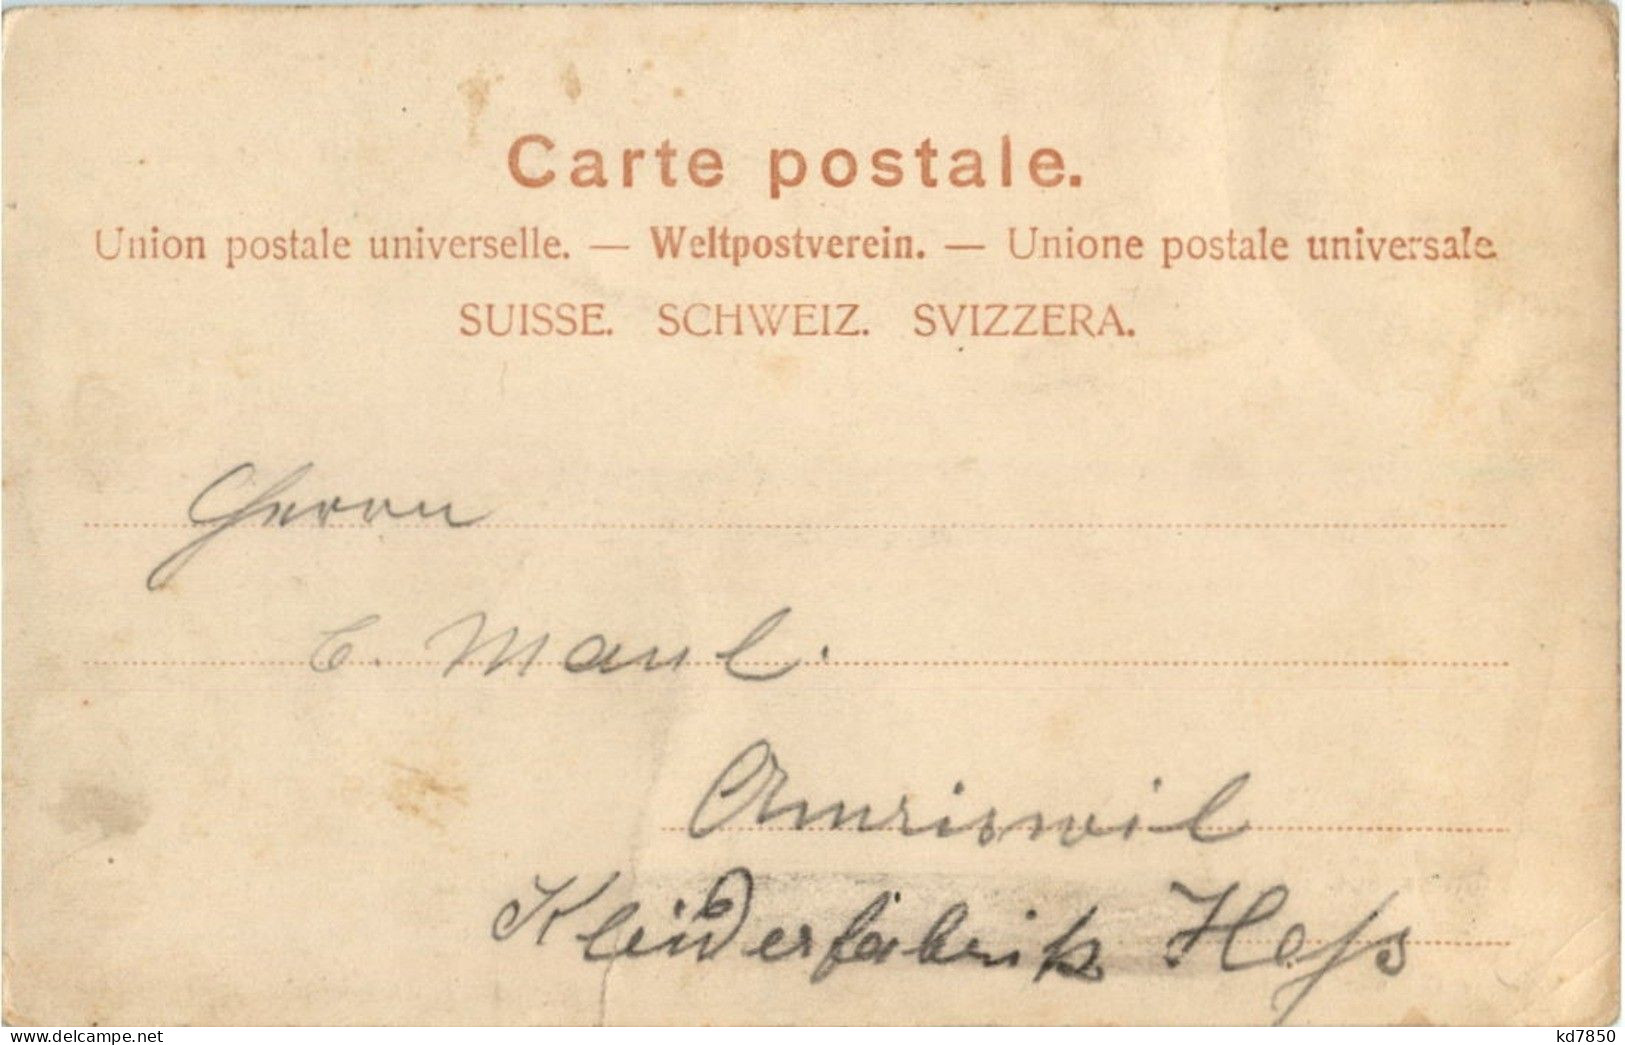 Carte postale.
Union postale universelle. — Weltpostverein. — Unione postale universale.
SUISSE. SCHWEIZ. SVIZZERA.
Herrn
C. Maul.
Amriswil
Kleiderfabrik Hess
www.delcampe.net
kd7850